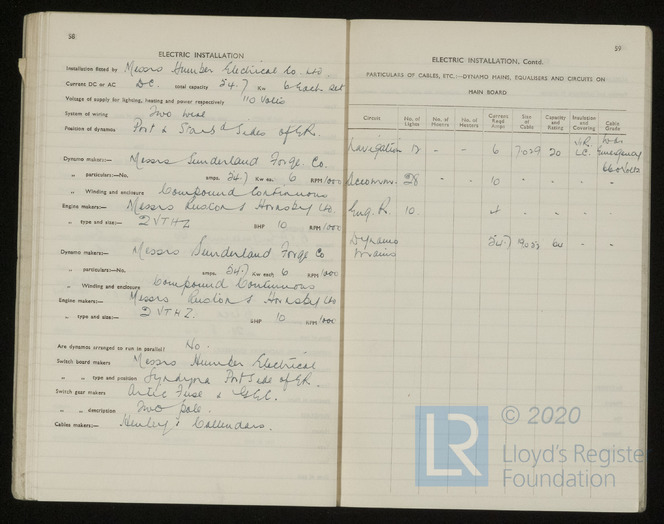 58
ELECTRIC INSTALLATION
Installation fitted by Messrs Humber Electrical Co. Ltd.
Current DC or AC DC. total capacity 54.7 Kw 6 Each Set
Voltage of supply for lighting, heating and power respectively 110 Volts
System of wiring Two wire
Position of dynamos Port & Starbd Sides of ER.
Dynamo makers:— Messrs Sunderland Forge Co.
„ particulars:—No. amps. 54.7 Kw ea. 6 RPM 1000
„ Winding and enclosure Compound Continuous
Engine makers:— Messrs Ruston & Hornsby Ltd.
„ type and size:— 2 VTHZ BHP 10 RPM 1000
Dynamo makers:— Messrs Sunderland Forge Co
„ particulars:—No. amps. 54.7 Kw each 6 RPM 1000
„ Winding and enclosure Compound Continuous
Engine makers:— Messrs Ruston & Hornsby Ltd
„ type and size:— 2 VTHZ. BHP 10 RPM 1000
Are dynamos arranged to run in parallel? No.
Switch board makers Messrs Humber Electrical
„ „ type and position Port Side of ER.
Switch gear makers Arctic Fuse & GEC.
„ „ description Two pole.
Cables makers:— Henley's Callendars.
59
ELECTRIC INSTALLATION, Contd.
PARTICULARS OF CABLES, ETC.:—DYNAMO MAINS, EQUALISERS AND CIRCUITS ON
MAIN BOARD
Circuit No. of Lights No. of Motors No. of Heaters Current Reqd Amps Size of Cable Capacity and Rating Insulation and Covering Cable Grade
Navigation 12 - - 6 7.029 20 V.R. L.C. Emergency 660 Volts
Accomm. 28 10 - - - -
Eng. R. 10 4 - - - -
Dynamo Mains 54.7 64 - -
LR
© 2020
Lloyd's Register
Foundation